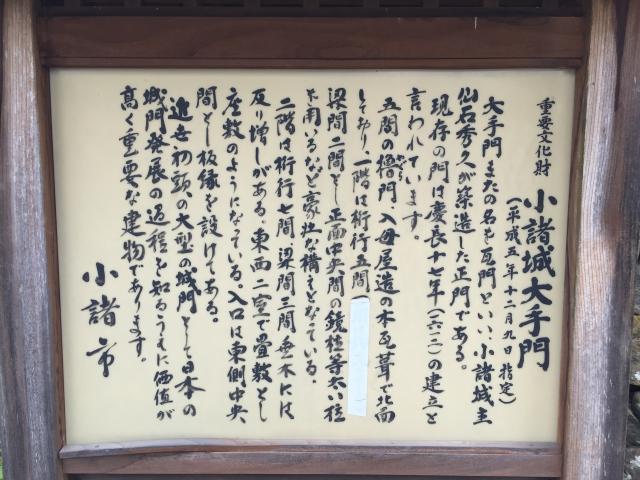 重要文化財 小諸城大手門
(平成五年十二月九日 指定)
大手門またの名を瓦門といい、小諸城主
仙石秀久が築造した正門である。
現存の門は慶長十七年(一六一二)の建立と
言われています。
五間の櫓門、入母屋造の本瓦葺で北面
やぐら
しており、一階は桁行五間
梁間二間とし正面中央間の鏡柱等太い柱
を用いるなど豪壮な構えとなっている。
二階は桁行七間、梁間三間垂木には
反り増しがある。東西二室で畳敷とし
座敷のようになっている。入口は東側中央
間とし板縁を設けてある。
近世初頭の大型の城門として日本の
城門発展の過程を知るうえに価値が
高く重要な建物であります。
小諸市